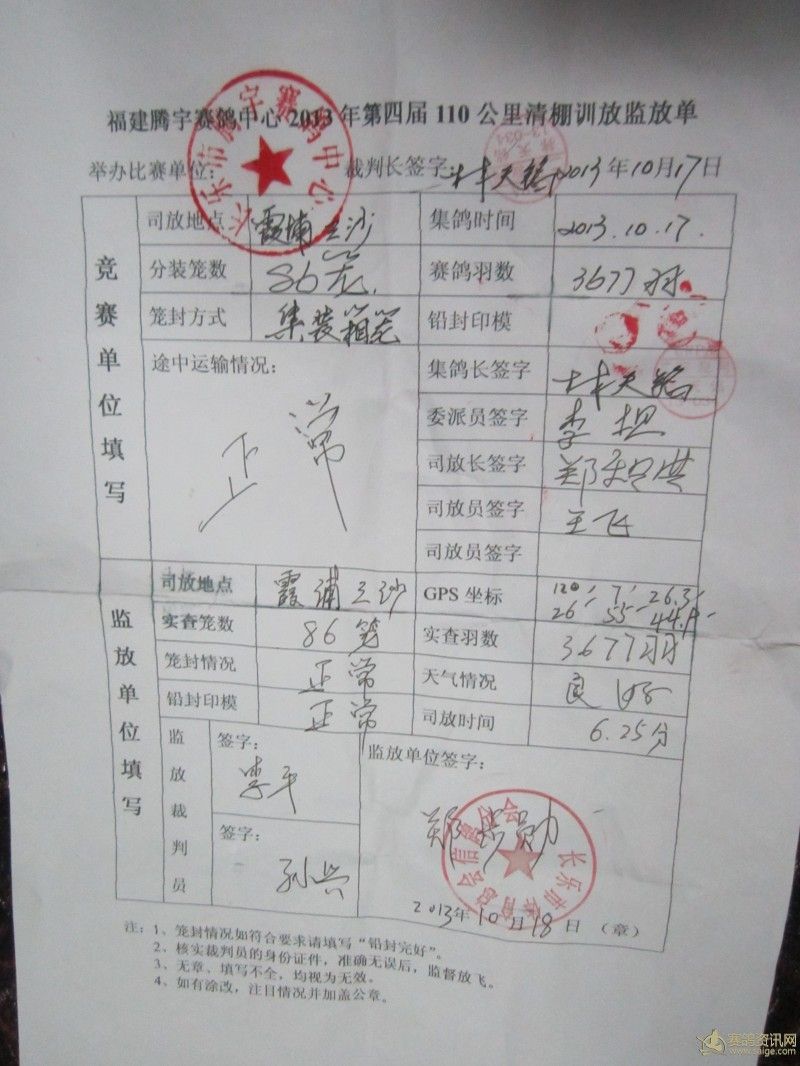 福建腾宇赛鸽中心2013年第四届110公里清棚训放监放单
举办比赛单位: 裁判长签字: 2013年10月17日
竞赛单位填写
司放地点 霞浦三沙 集鸽时间 2013.10.17.
分装笼数 86笼 赛鸽羽数 3677羽
笼封方式 集装箱笼 铅封印模
途中运输情况: 正常 集鸽长签字
委派员签字 李坦
司放长签字
司放员签字 王飞
司放员签字
监放单位填写
司放地点 霞浦三沙 GPS 坐标 120 7 26.3
26 55 44.
实查笼数 86笼 实查羽数 3677羽
笼封情况 正常 天气情况 良好
铅封印模 正常 司放时间 6.25分
监放裁判员 签字: 李干 监放单位签字:
签字: 孙兴
2013年10月18日 (章)
注: 1、笼封情况如符合要求请填写“铅封完好”。
2、核实裁判员的身份证件，准确无误后，监督放飞。
3、无章、填写不全，均视为无效。
4、如有涂改，注目情况并加盖公章。
赛鸽资讯网
www.saige.com